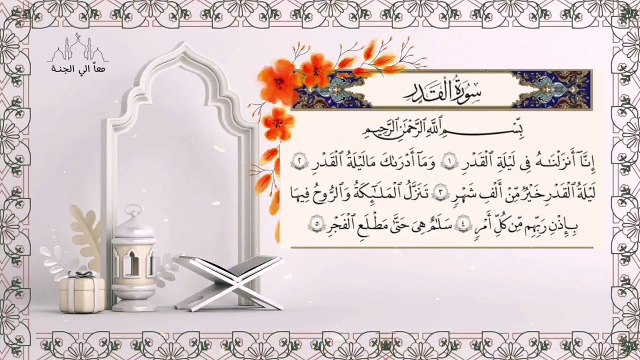 معاً الي الجنة
سُورَةُ الْقَدْرِ
بِسْمِ اللَّهِ الرَّحْمَٰنِ الرَّحِيمِ
إِنَّآ أَنزَلْنَٰهُ فِى لَيْلَةِ ٱلْقَدْرِ ١ وَمَآ أَدْرَىٰكَ مَا لَيْلَةُ ٱلْقَدْرِ ٢
لَيْلَةُ ٱلْقَدْرِ خَيْرٌ مِّنْ أَلْفِ شَهْرٍ ٣ تَنَزَّلُ ٱلْمَلَٰٓئِكَةُ وَٱلرُّوحُ فِيهَا
بِإِذْنِ رَبِّهِم مِّن كُلِّ أَمْرٍ ٤ سَلَٰمٌ هِىَ حَتَّىٰ مَطْلَعِ ٱلْفَجْرِ ٥